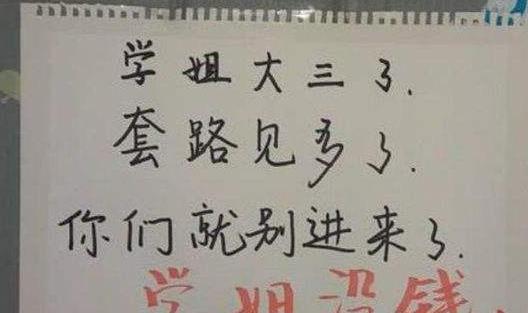 学姐大三了.
套路见多了.
你们就别进来了.
学姐没钱.